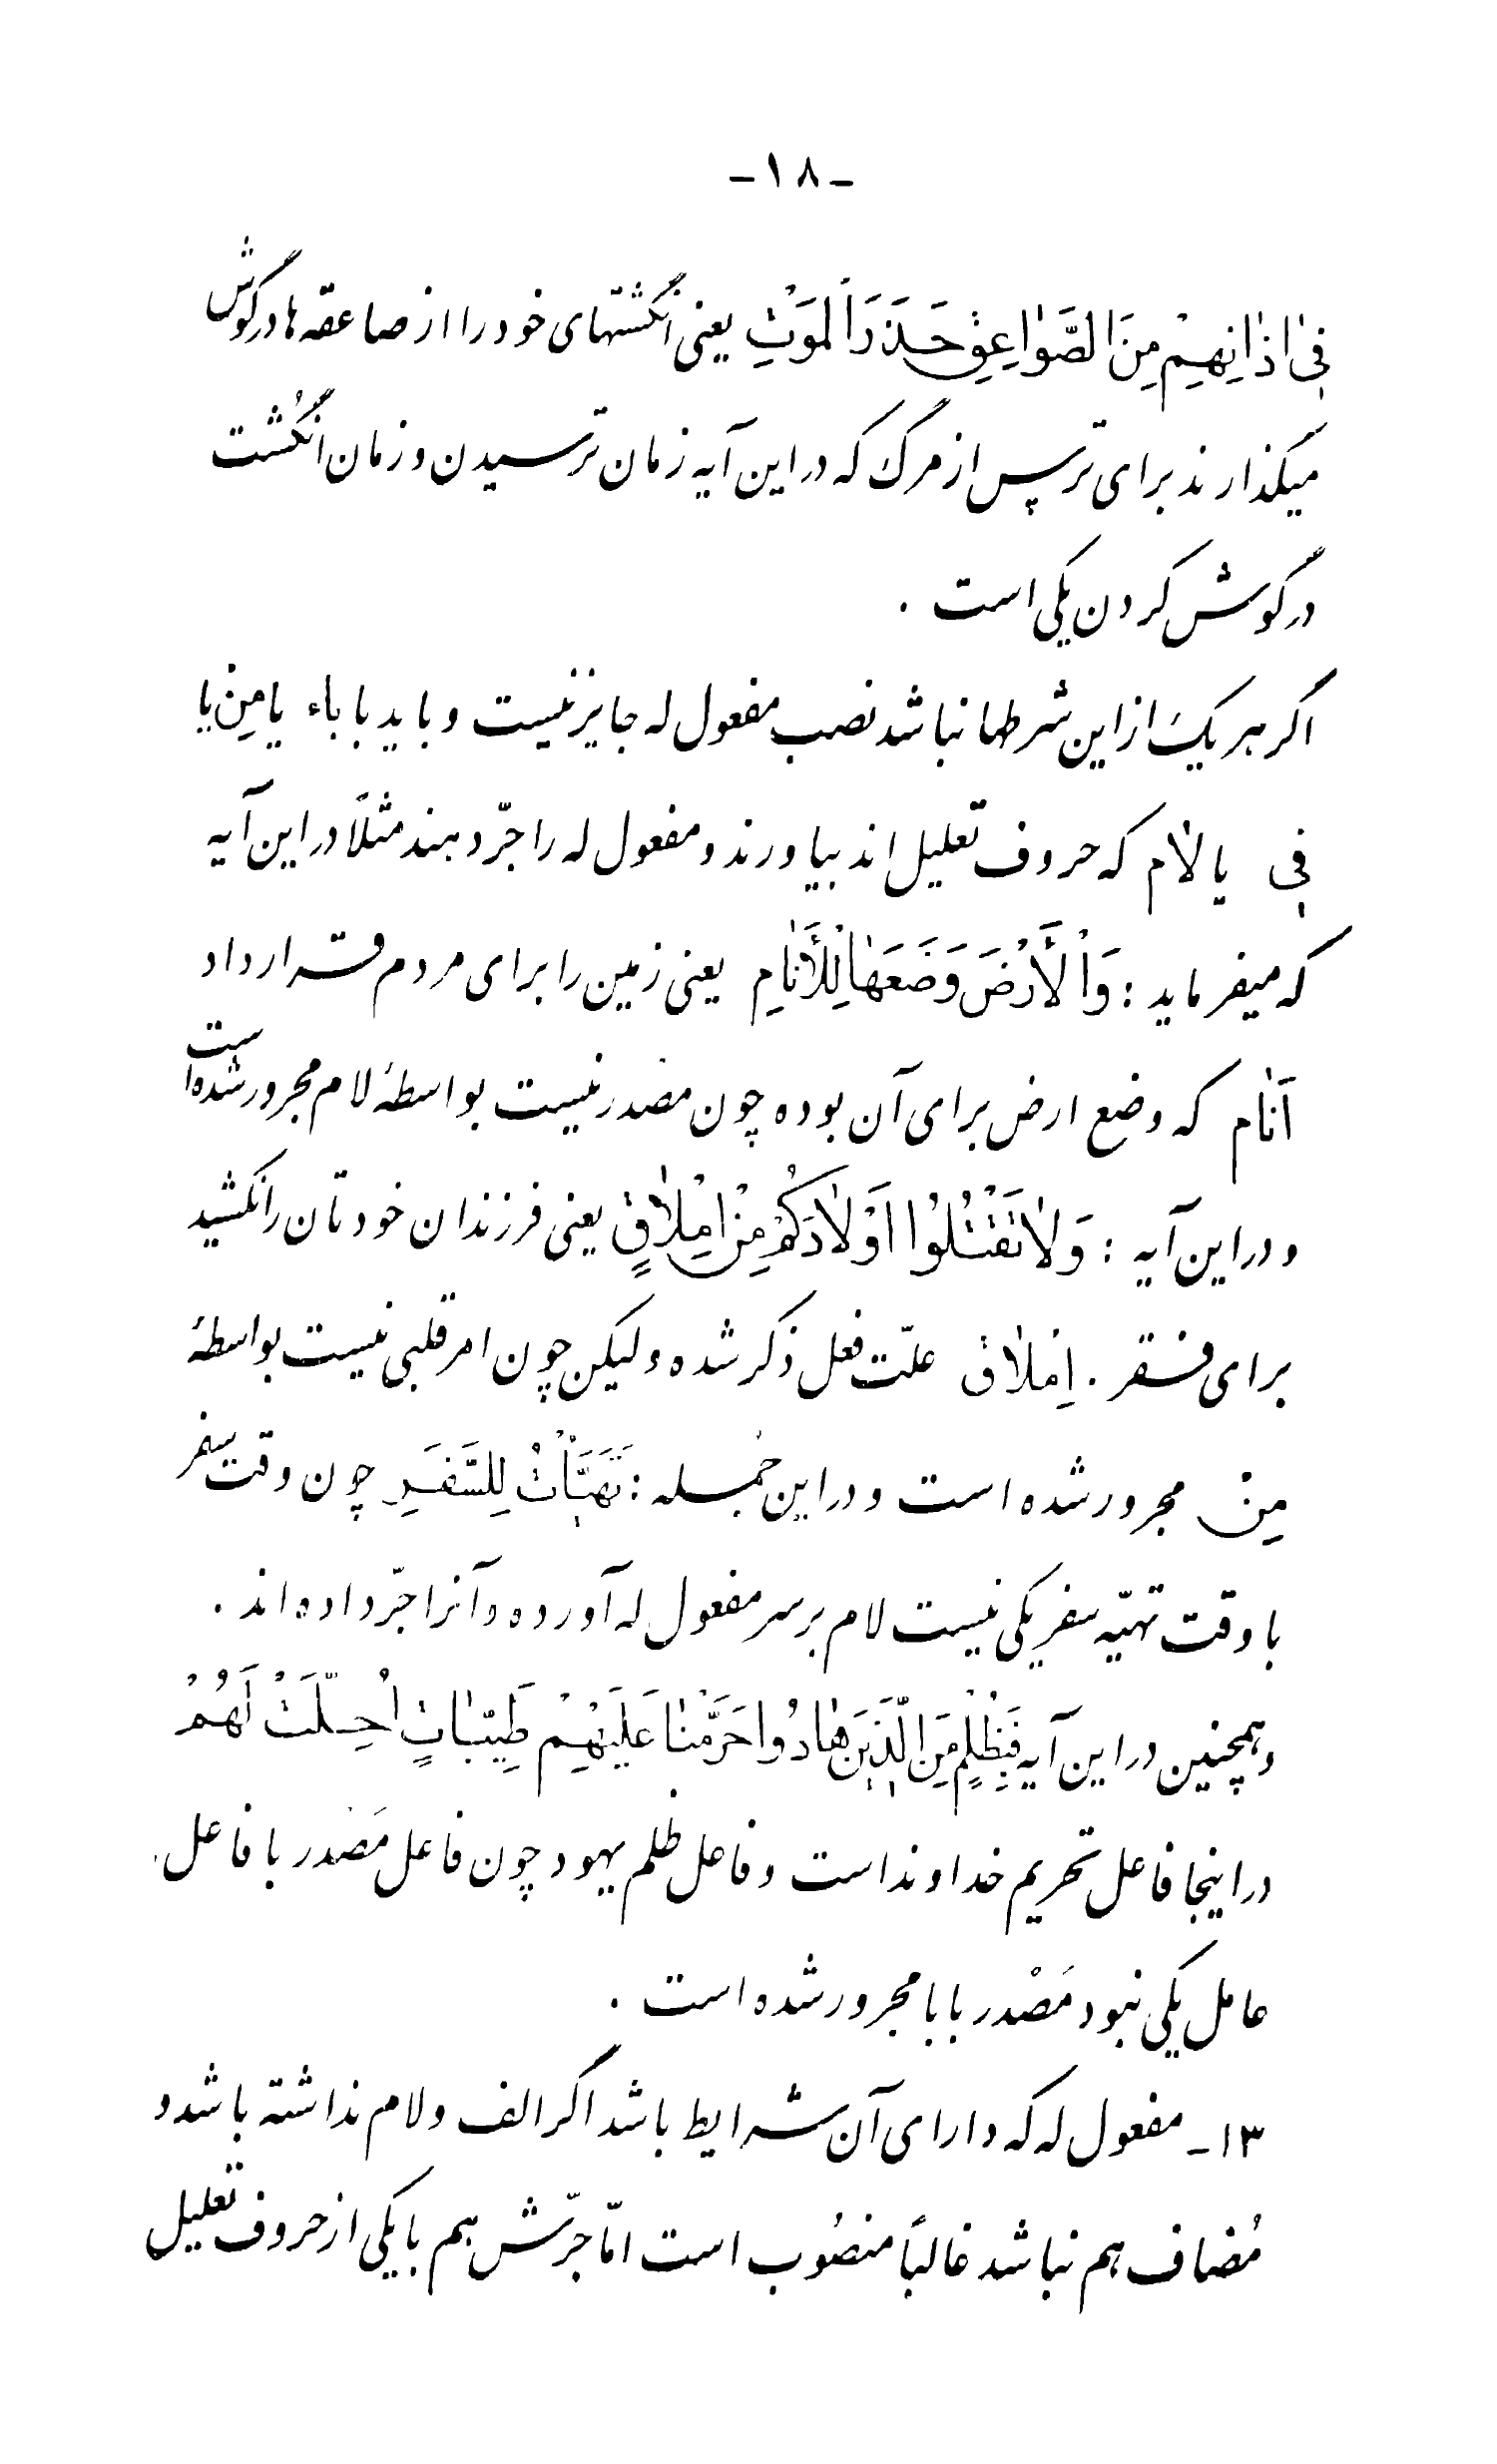 -۱۸-
فِیٓ اٰذٰانِهِمْ مِنَ الصَّوٰاعِقِ حَذَرَ الْمَوْتِ یعنی انگشتهای خود را از صاعقه ها در گوش
میگذارند برای ترس از مرگ که در این آیه زمان ترسیدن و زمان انگشت
در گوش کردن یکی است .
اگر هر یک از این شرطها نباشد نصب مفعول له جایز نیست و باید با باء یا مِنْ یا
فی یا لام که حروف تعلیل اند بیاورند و مفعول له را جرّ دهند مثلاً در این آیه
که میفرماید : وَالْأَرْضَ وَضَعَهٰا لِلْأَنٰامِ یعنی زمین را برای مردم قرار داد
اَنٰام که وضع ارض برای آن بوده چون مصدر نیست بواسطهٔ لام مجرور شده است
و در این آیه : وَلٰا تَقْتُلُوْا اَوْلٰادَکُمْ مِنْ اِمْلٰاقٍ یعنی فرزندان خودتان را نکشید
برای فقر . اِمْلٰاق علّت فعل ذکر شده ولیکن چون امر قلبی نیست بواسطهٔ
مِنْ مجرور شده است و در این جمله : تَهَیَّأْتُ لِلسَّفَرِ چون وقت سفر
با وقت تهیّه سفر یکی نیست لام بر سر مفعول له آورده و آنرا جرّ داده اند .
و همچنین در این آیه فَبِظُلْمٍ مِنَ الَّذِینَ هٰادُوا حَرَّمْنٰا عَلَیْهِمْ طَیِّبٰاتٍ اُحِلَّتْ لَهُمْ
در اینجا فاعل تحریم خداوند است و فاعل ظلم یهود چون فاعل مَصْدر با فاعل
عامل یکی نبود مَصْدر با با مجرور شده است .
۱۳- مفعول له که دارای آن شرایط باشد اگر الف و لام نداشته باشد و
مُضاف هم نباشد غالباً منصُوب است امّا جرّش هم با یکی از حروف تعلیل